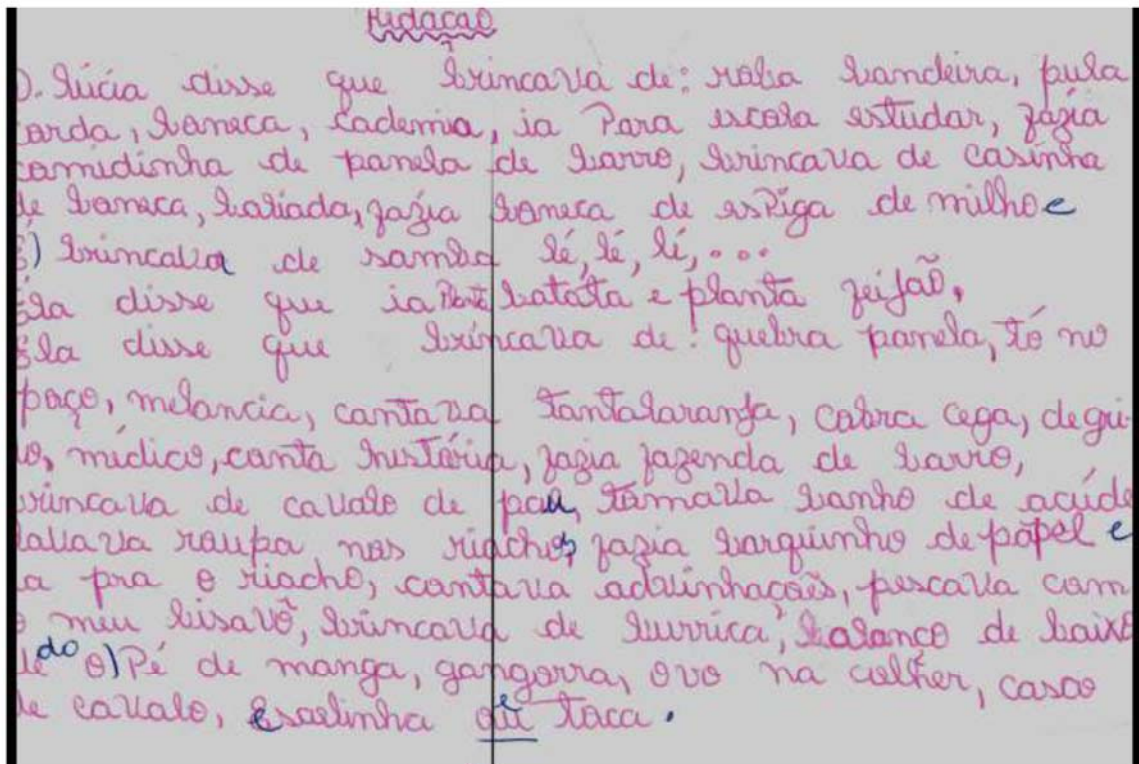 Redação
D. Lúcia disse que brincava de: roba bandeira, pula
corda, boneca, cademia, ia Para escola estudar, fazia
comidinha de panela de barro, brincava de casinha
de boneca, baliada, fazia boneca de esPiga de milho e
brincava de samba lé, lé, lé,...
Ela disse que ia batata e planta feijão,
Ela disse que brincava de: quebra panela, tô no
poço, melancia, cantava Tantalaranja, cabra cega, de
médico, conta história, fazia fazenda de barro,
brincava de cavalo de pau, tomava banho de açúde
lavava roupa, nos riachos, fazia barquinho de papel e
ia pra o riacho, contava advinhações, pescava com
o meu bisavô, brincava de burrica, balanço de baixo
do Pé de manga, gangorra, ovo na colher, casco
de cavalo, Escolinha toca.